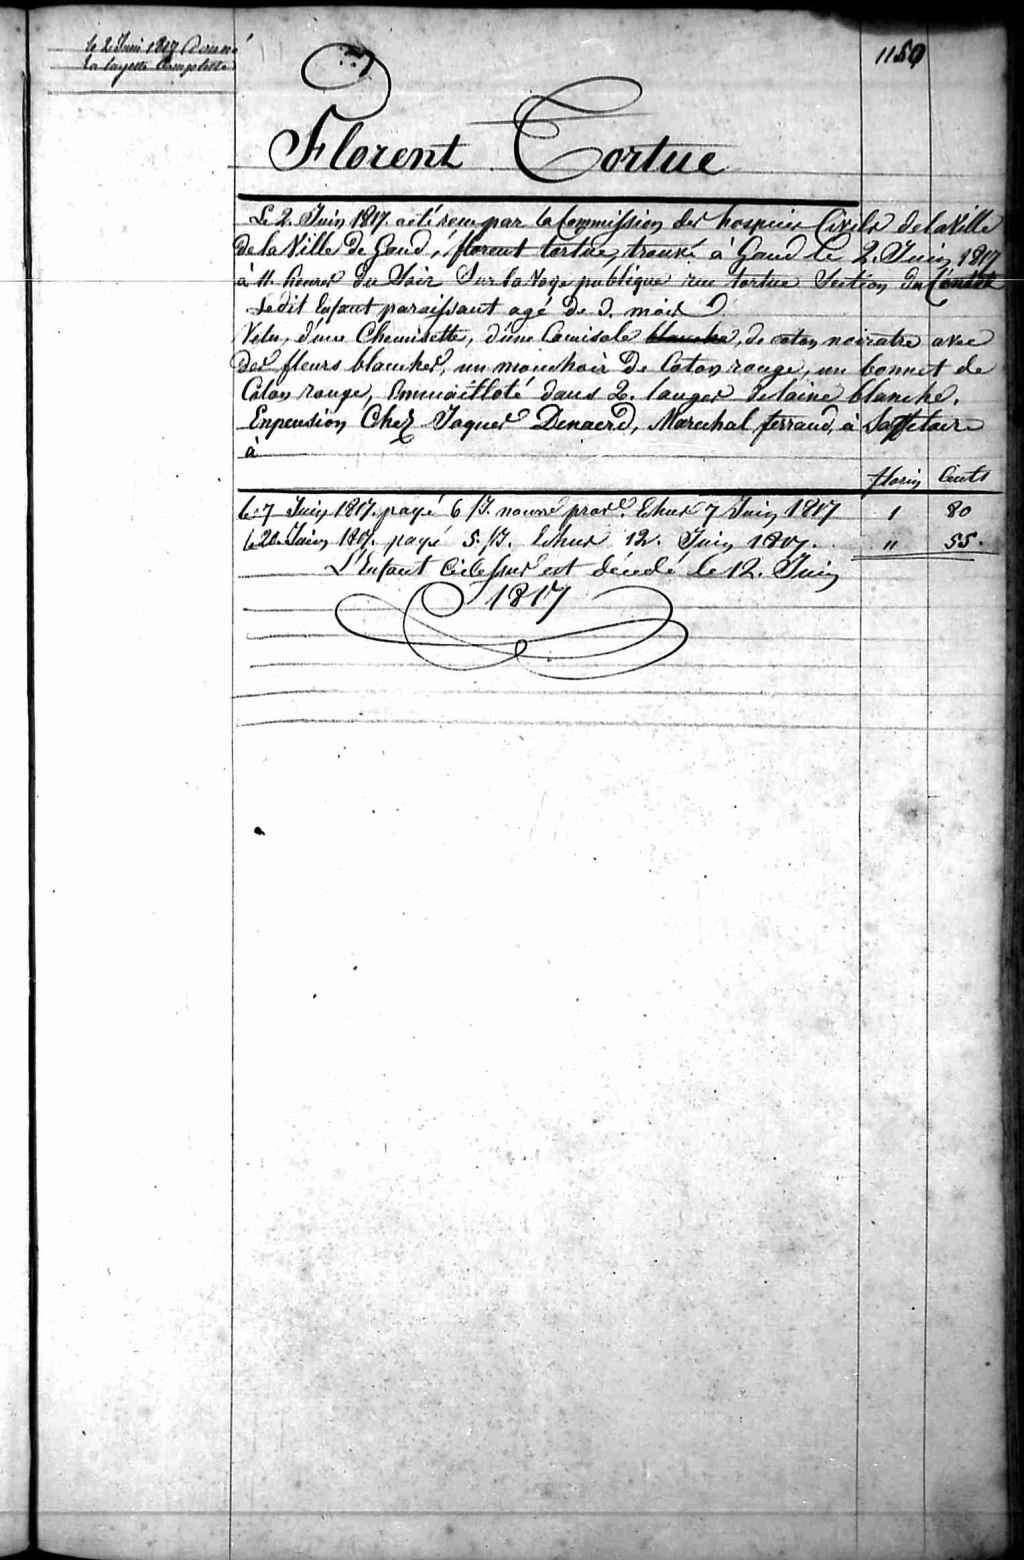 le 2 Juin 1817 Donné
la layette Complette
1159
Florent Tortue
Le 2. Juin 1817. a été reçu par la Commission des hospices Civils de la Ville
de la Ville de Gand, florent tortue, trouvé à Gand le 2. Juin 1817
à 11. heures du Soir Sur la Voye publique rue tortue Section de
Ledit Enfant paraissant agé de 3. mois
Vetu, d'une Chemisette, d'une Camisole blanche, de coton noiratre avec
des fleurs blanches, un mouchoir de Coton rouge, un bonnet de
Coton rouge, Emmailloté dans 2. langes de laine blanche.
En pension Chez Jaques Denaerd, Marechal ferrand, à Saffelaire
à
florin Cents
le 7 Juin 1817. payé 6 Echus 7 Juin 1817 1 80
Juin 1817. payé 5. Echus 12. Juin 1817. " 55.
L'Enfant Cidessus est décédé le 12. Juin
1817